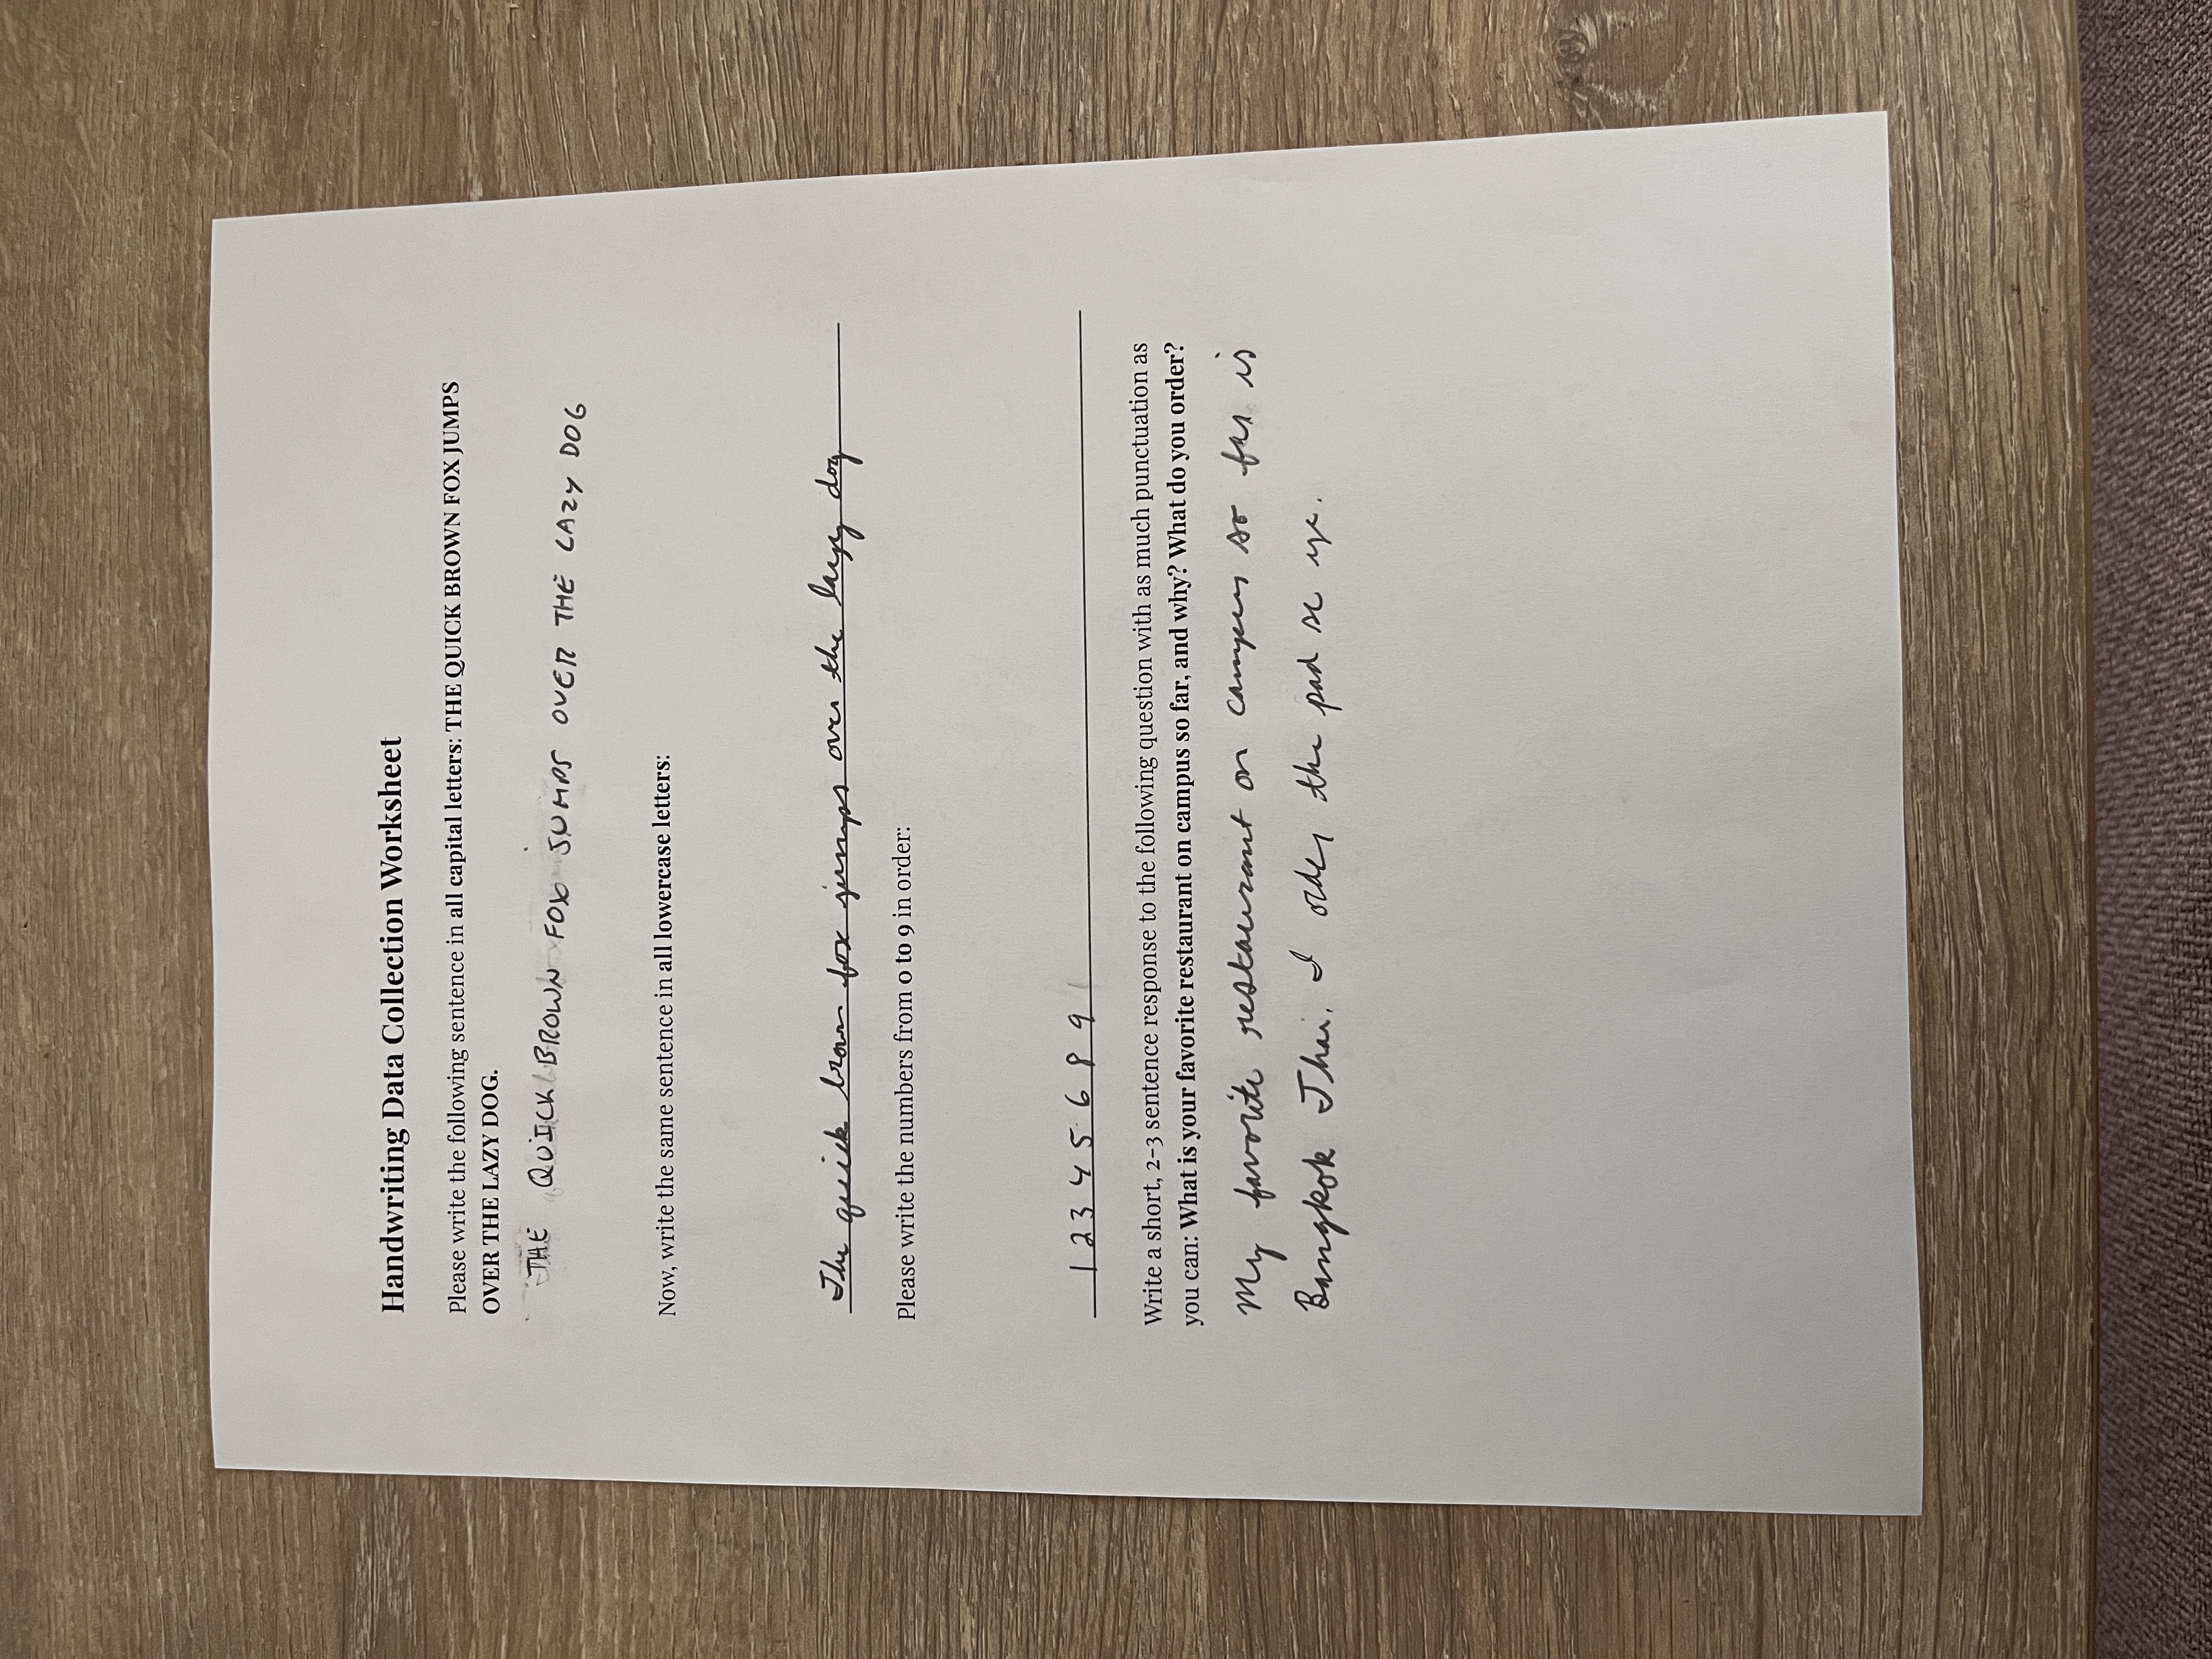 Handwriting Data Collection Worksheet
Please write the following sentence in all capital letters: THE QUICK BROWN FOX JUMPS
OVER THE LAZY DOG.
THE QUICK BROWN FOX JUMPS OVER THE LAZY DOG
Now, write the same sentence in all lowercase letters:
The quick brown fox jumps over the lazy dog
Please write the numbers from 0 to 9 in order:
1 2 3 4 5 6 8 9
Write a short, 2-3 sentence response to the following question with as much punctuation as
you can: What is your favorite restaurant on campus so far, and why? What do you order?
My favorite restaurant on campus so far is
Bangkok Thai. I order the pad se ye.